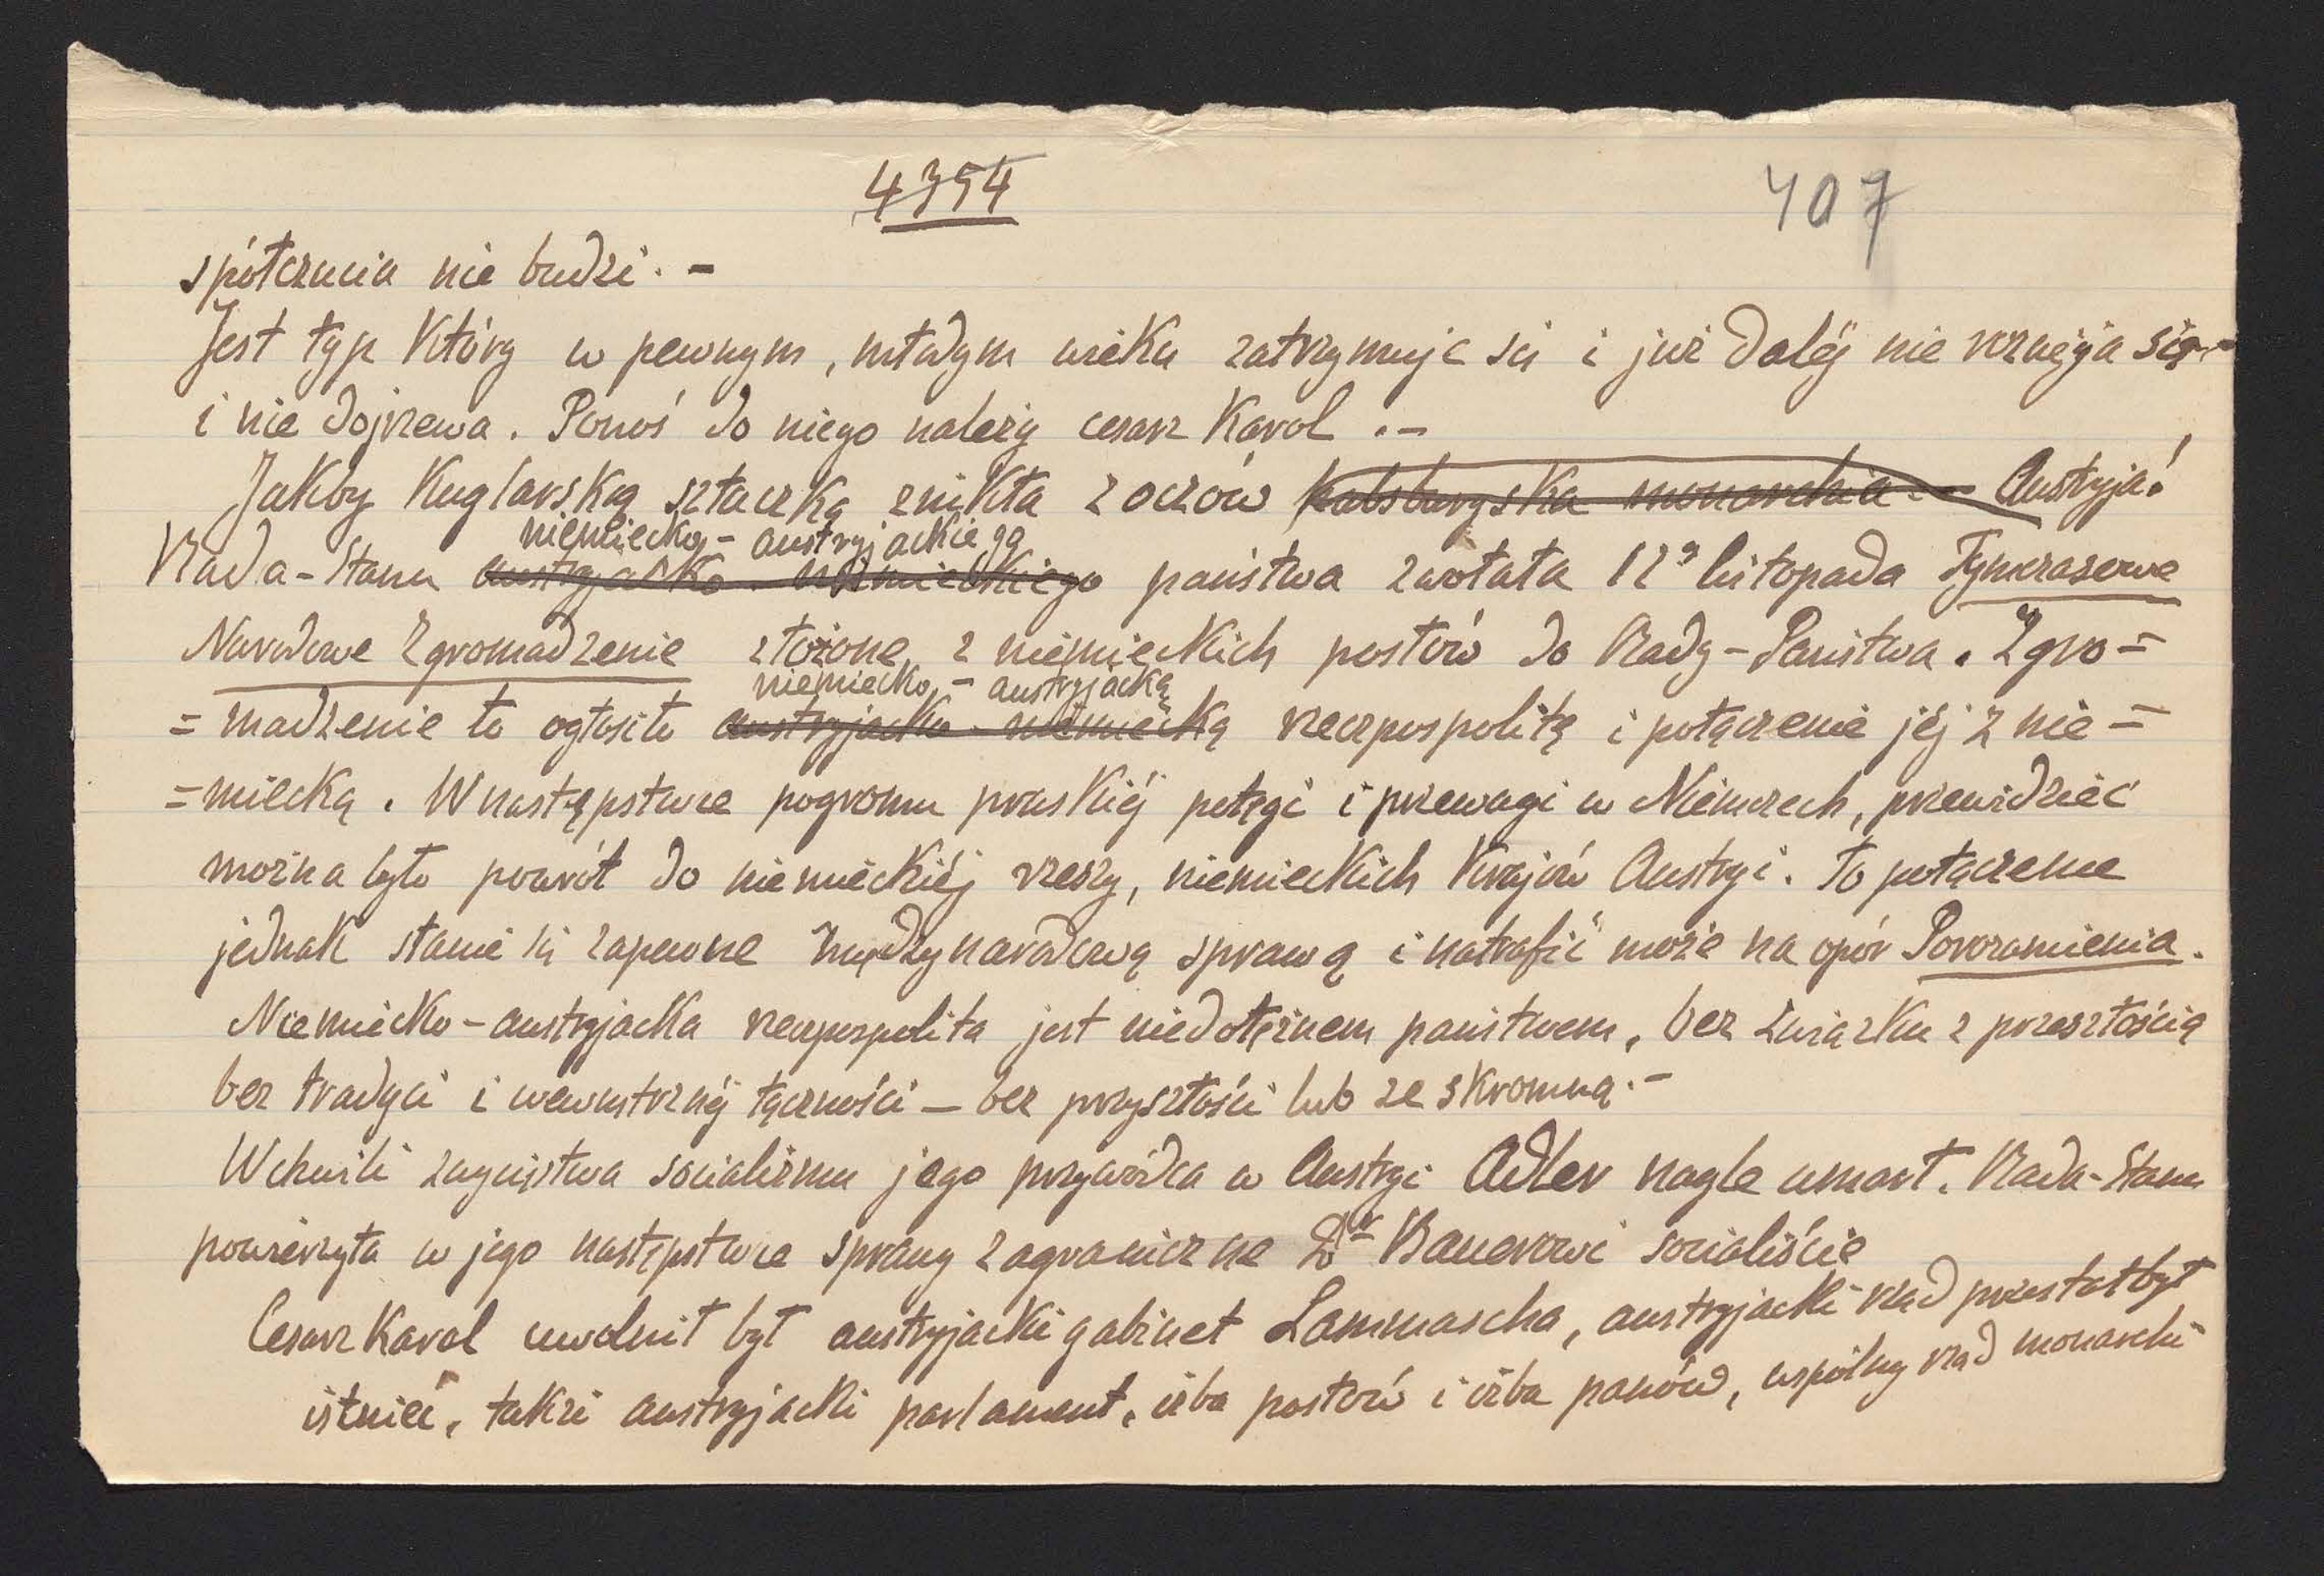 4354
407
spółczucia nie budzi. -
Jest typ który w pewnym, młodym wieku zatrzymuje się i już daléj nie rozwija się -
i nie dojrzewa. Ponoś do niego należy cesarz Karol. -
Jakby kuglarską sztuczką znikła z oczów habsburgska monarchia - Austryja!
niemiecko - austryjackiego
Rada-Stanu austryjacko - niemieckiego państwa zwołała 12º listopada Tymczasowe
Narodowe Zgromadzenie złożone z niemieckich posłów do Rady-Państwa. Zgro=
niemiecko - austryjacką
=madzenie to ogłosiło austryjacko - niemiecką rzeczpospolitę i połączenie jéj z nie=
=miecką. W następstwie pogromu pruskiéj potęgi i przewagi w Niemczech, przewidzieć
można było powrót do niemieckiéj rzeszy, niemieckich krajów Austryi. To połączenie
jednak stanie się zapewne międzynarodową sprawą i natrafić może na opór Porozumienia.
Niemiecko-austryjacka rzeczpospolita jest niedołężnem państwem, bez związku z przeszłością
bez tradyci i wewnętrznéj łączności - bez przyszłości lub ze skromną. -
W chwili zwycięstwa socializmu jego przywódca w Austryi Adler nagle umarł. Rada-Stanu
powierzyła w jego następstwie sprawy zagraniczne Dr Bauerowi socialiście
Cesarz Karol uwolnił był austryjacki gabinet Lammascha, austryjacki rząd przestał był
istnieć, takżi austryjacki parlament, izba posłów i izba panów, wspólny rząd monarchii